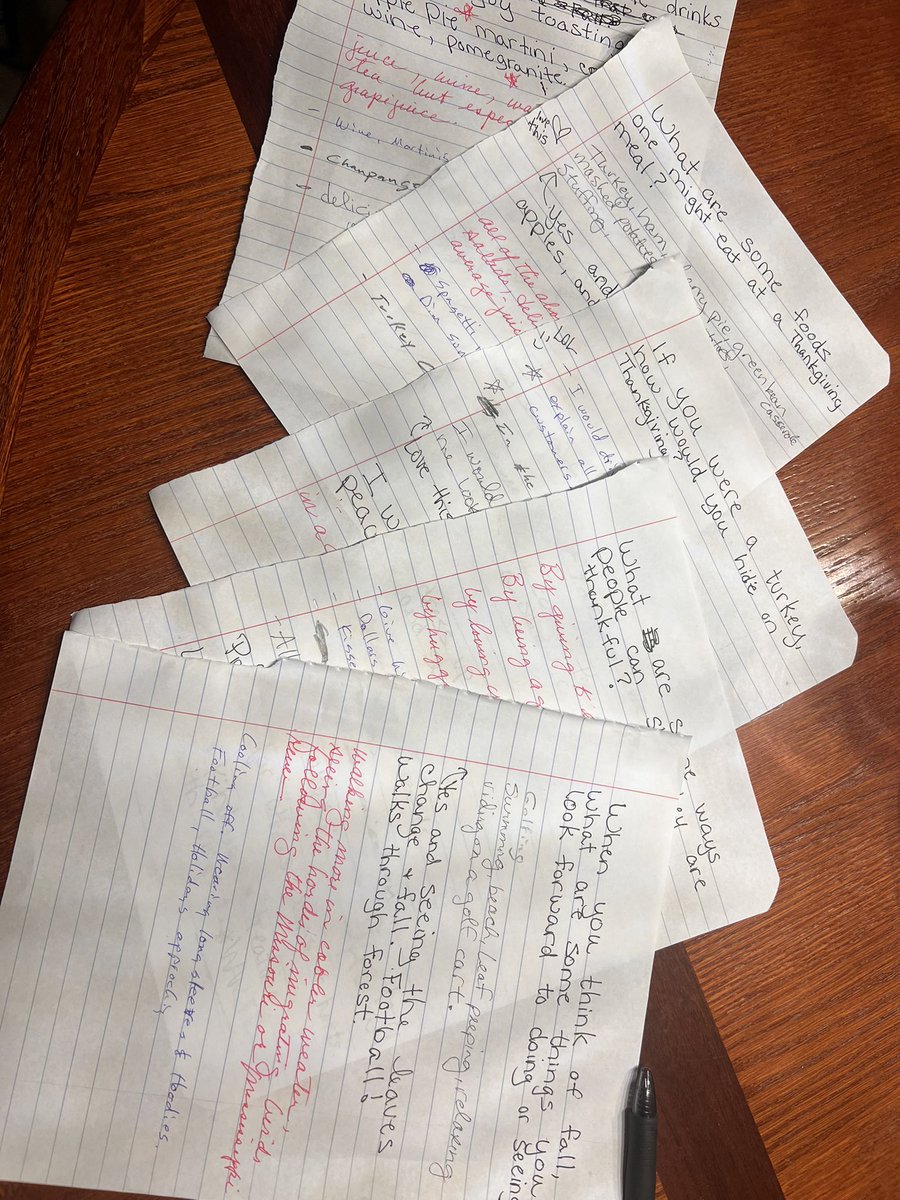 drinks
joy toasting
ple Pie martini,
wine, pomegranite.
juice, wine,
tea but
grapijuice
- Wine, Martinis
- Champange
- delic
What are some foods
one might eat at a Thankgiving
meal?
love
this
Turkey, ham, pie, green bean casserole
mashed potatoes
Stuffing,
↖ Yes and
apples, and
all of the
salads, deli
average
Spagetti
- Turkey
If you were a turkey,
how would you hide on
Thanksgiving?
LOL
- I would di
* explain all
customers
* In the
I would
ine loo
↖ Love this
I w
peac
in a
What are s me ways
people can s ou are
thankful?
By giving
By being a
by loving
by hugg
- Give h
- Dollars
Kisse
- All
Pr
When you think of fall,
what are some things you
look forward to doing or seeing
Golfing
Swimming, beach, leaf peeping, relaxing
riding on a golf cart.
↖ Yes and seeing the leaves
change & fall. Football!
Walks through forest.
Walking more in cooler weater,
seeing the hords of migrating birds
following the Missouri or Mississippi
River
Cooling off. Wearing long sleeves & Hoodies.
Football, Holidays approching